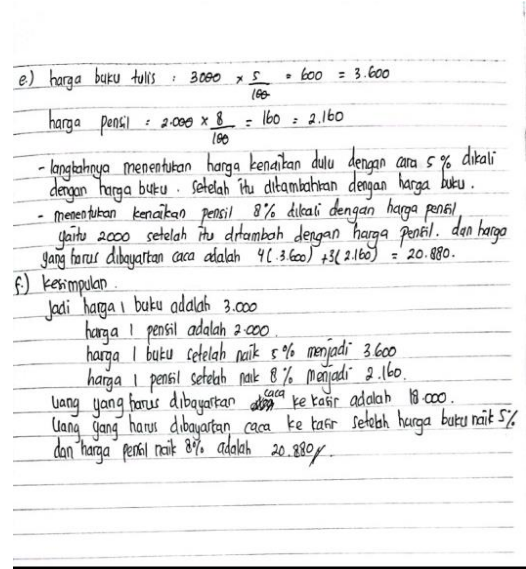 e.) harga buku tulis : 3000 × 5/100 = 600 = 3.600
harga pensil : 2.000 × 8/100 = 160 = 2.160
- langkahnya menentukan harga kenaikan dulu dengan cara 5 % dikali
dengan harga buku . setelah itu ditambahkan dengan harga buku .
- menentukan kenaikan pensil 8% dikali dengan harga pensil
yaitu 2000 setelah itu ditambah dengan harga pensil. dan harga
yang harus dibayarkan caca adalah 4(3.600) +3(2.160) = 20.880.
f.) kesimpulan .
Jadi harga 1 buku adalah 3.000
harga 1 pensil adalah 2.000
harga 1 buku setelah naik 5 % menjadi 3.600
harga 1 pensil setelah naik 8 % menjadi 2.160.
Uang yang harus dibayarkan caca ke kasir adalah 18.000.
Uang yang harus dibayarkan caca ke kasir setelah harga buku naik 5%
dan harga pensil naik 8% adalah 20.880